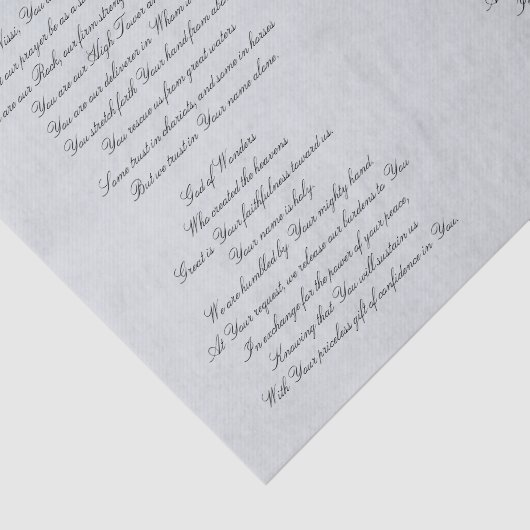 Nissi, You
our prayer be as a
are our Rock, our firm
You are our High Tower
You are our deliverer in Whom
You stretch forth Your hand from
You rescue us from great waters
Some trust in chariots, and some in horses
But we trust in Your name alone.
God of Wonders
Who created the heavens
Great is Your faithfulness toward us.
Your name is holy.
We are humbled by Your mighty hand.
At Your request, we release our burdens to You
In exchange for the power of your peace,
Knowing that You will sustain us
With Your priceless gift of confidence in You.